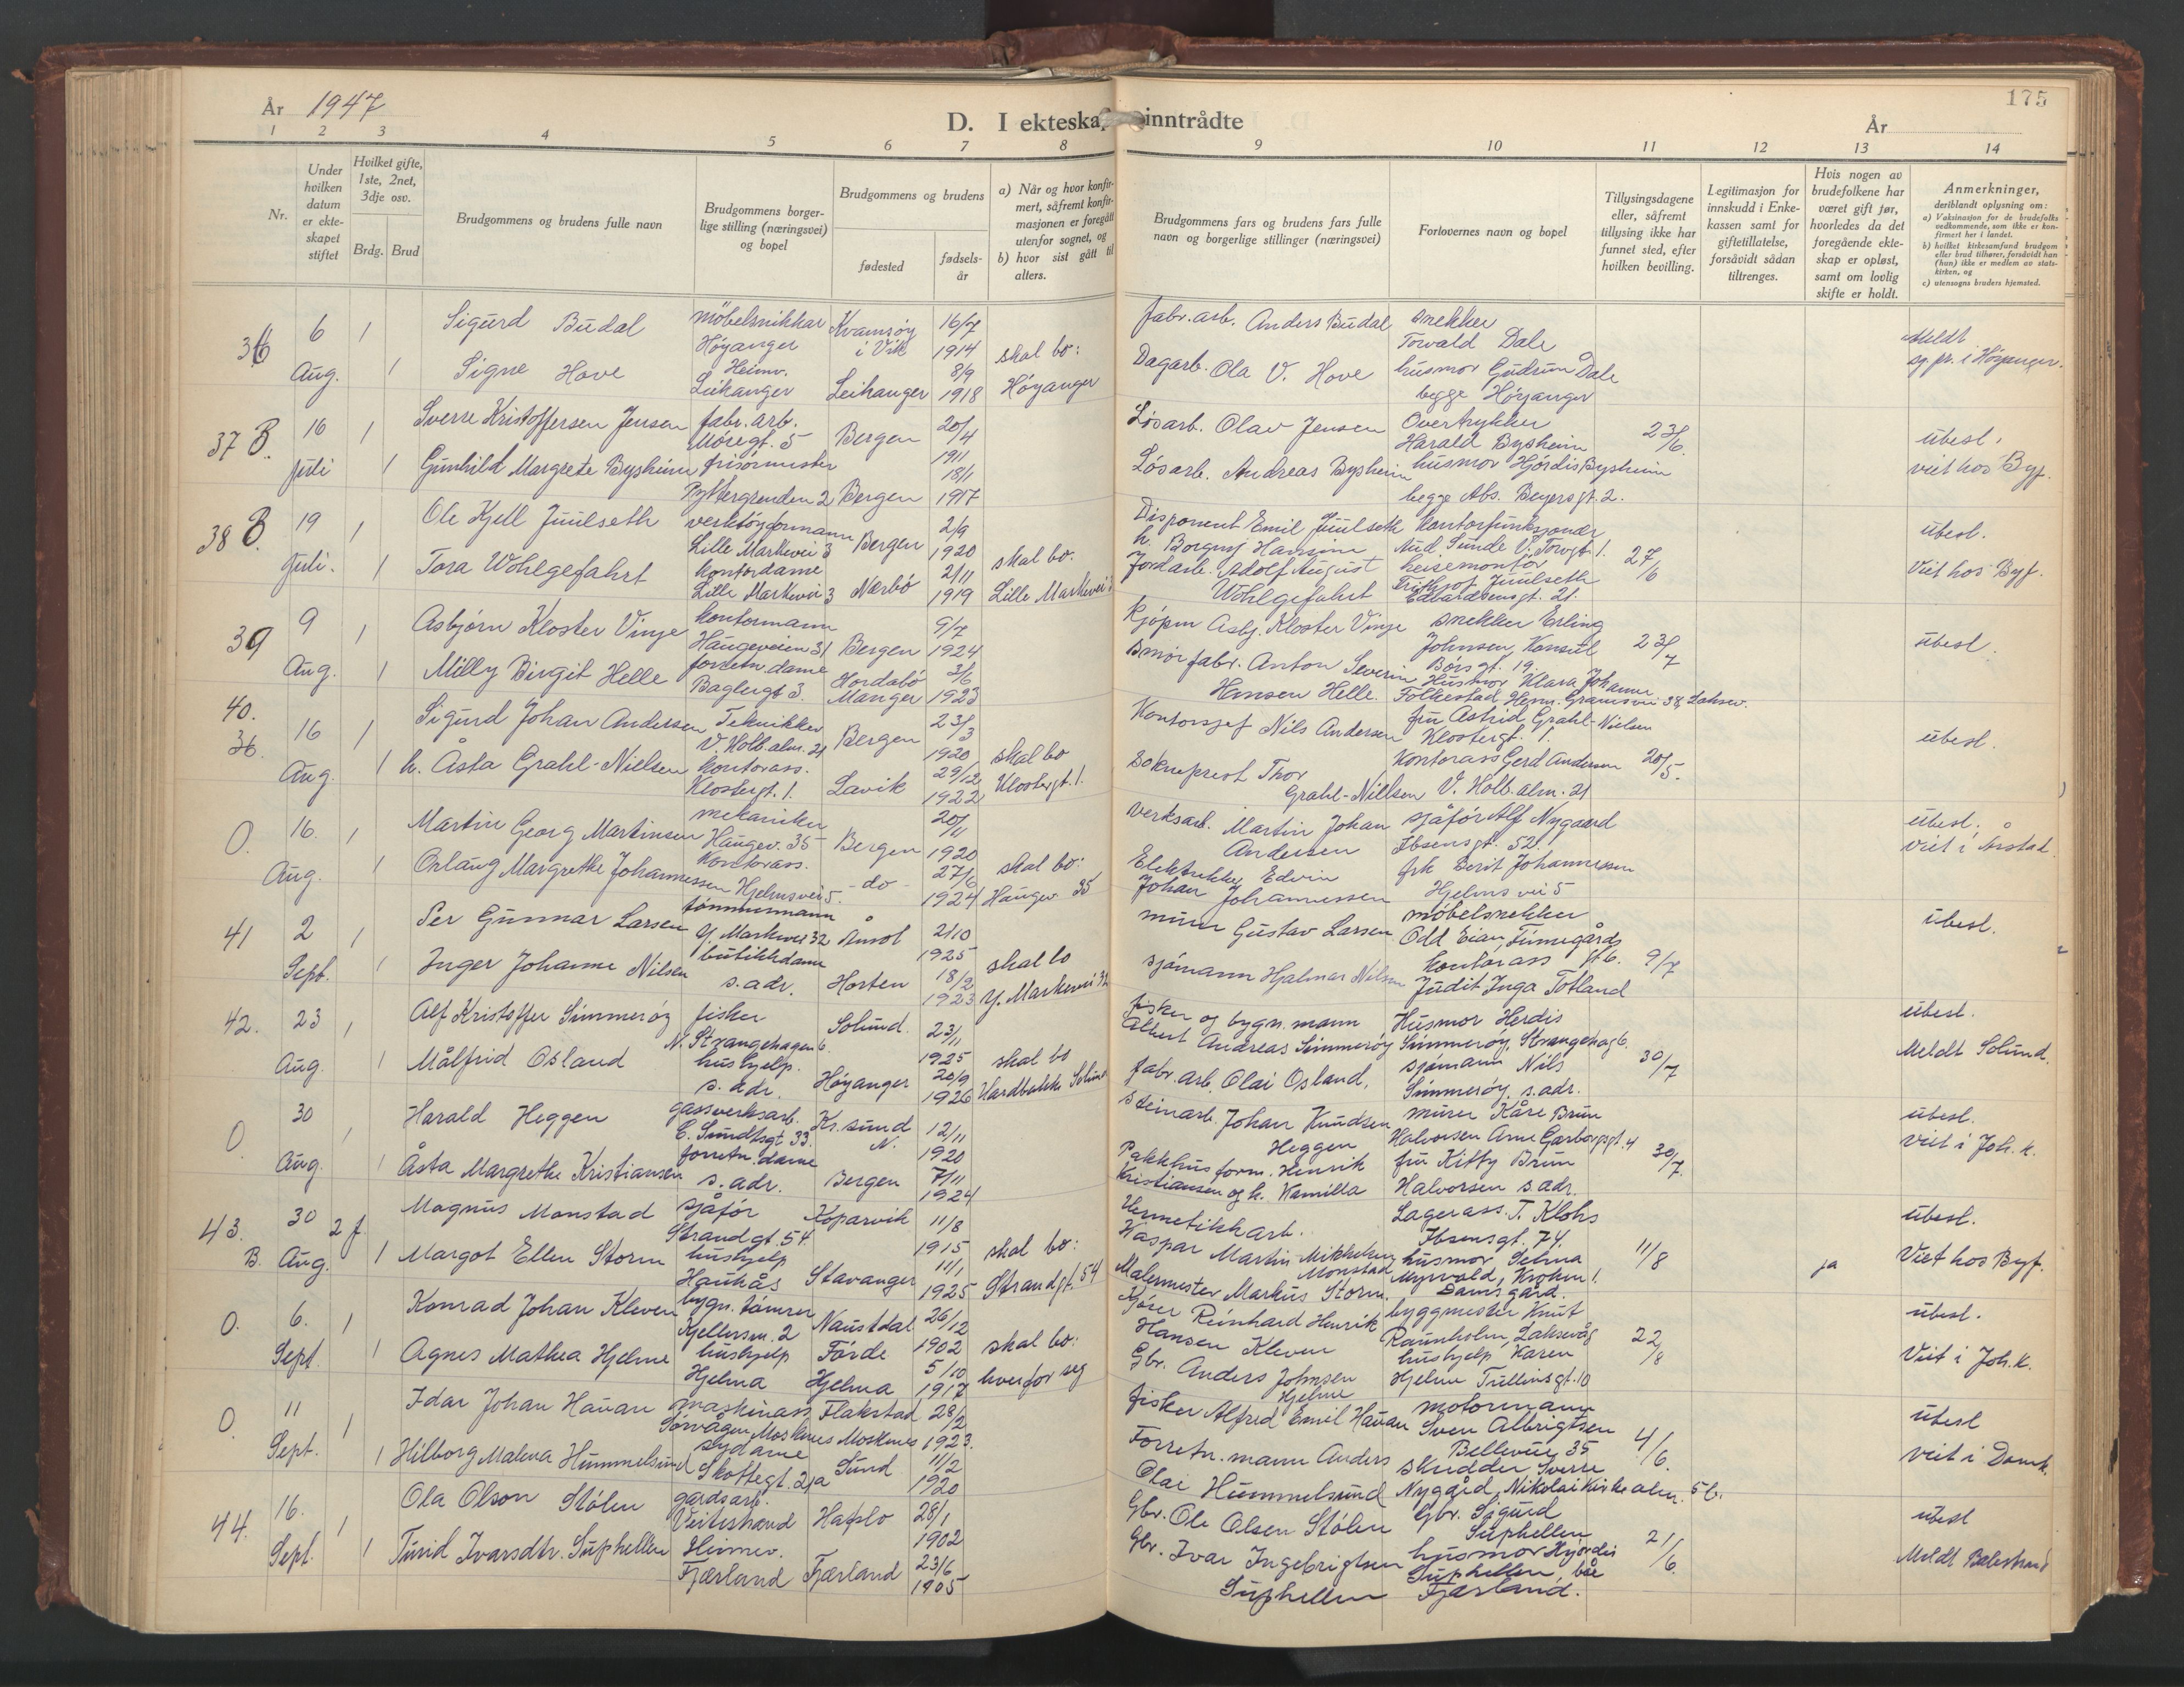 År 1947
D. I ekteska inntrådte
175
År
1 2 3 4 5 6 7 8 9 10 11 12 13 14
Nr.
Under hvilken datum er ekteskapet stiftet
Hvilket gifte, 1ste, 2net, 3dje osv.
Brdg. Brud
Brudgommens og brudens fulle navn
Brudgommens borgerlige stilling (næringsvei) og bopel
Brudgommens og brudens
fødested
fødselsår
a) Når og hvor konfirmert, såfremt konfirmasjonen er foregått utenfor sognet, og
b) hvor sist gått til alters.
Brudgommens fars og brudens fars fulle navn og borgerlige stillinger (næringsvei)
Forlovernes navn og bopel
Tillysingsdagene eller, såfremt tillysing ikke har funnet sted, efter hvilken bevilling.
Legitimasjon for innskudd i Enkekassen samt for giftetillatelse, forsåvidt sådan tiltrenges.
Hvis nogen av brudefolkene har været gift før, hvorledes da det foregående ekteskap er opløst, samt om lovlig skifte er holdt.
Anmerkninger, deriblandt oplysning om:
a) Vaksinasjon for de brudefolks vedkommende, som ikke er konfirmert her i landet.
b) hvilket kirkesamfund brudgom eller brud tilhører, forsåvidt han (hun) ikke er medlem av statskirken, og
c) utensogns bruders hjemsted.
36 6 Aug. 1 Sigurd Budal møbelsnikkar Høyanger Kvamsøy i Vik 16/7 1914 skal bo: Høyanger
fabr. arb. Anders Budal snekker Torvald Dale Meldt sg. pr. i Høyanger.
1 Signe Hove Heimv. Leikanger Leikanger 8/9 1918
Dagarb. Ola V. Hove husmor Gudrun Dale begge Høyanger
37 B. 16 Juli 1 Sverre Kristoffersen Jensen fabr. arb. Møregt. 5 Bergen 20/4 1911
Løsarb. Olav Jensen Overtrykker Harald Bysheim 23/6. ubesl. viet hos Byf.
1 Gunhild Margrete Bysheim frisørmester Pyttergrenden 2 Bergen 18/1 1917
Løsarb. Andreas Bysheim husmor Hjørdis Bysheim begge Abs. Beyersgt. 2.
38 B. 19 Juli. 1 Ole Kjell Juulseth verktøyformann Lille Markevei 3 Bergen 2/9 1920 skal bo: Lille Markevei 3
Disponent Emil Juulseth h. Borgny Hansine kontorfunksjonær Aud Sunde V. Torvgt. 1. 27/6 ubesl. Viet hos Byf.
1 Tora Wohlgefahrt kontordame Lille Markevei 3 Nærbø 2/11 1919
Jordarb. Adolf August Wohlgefahrt heisemontør Frithjof Juulseth Edvardsensgt. 21.
39 9 Aug. 1 Asbjørn Kloster Vinje kontormann Haugeveien 31 Bergen 9/7 1924
Kjøpm Asbj. Kloster Vinje snekker Erling Johnsen, Konsul Børsgt. 19. 23/7 ubesl.
1 Milly Birgit Helle forretn. dame Baglergt 3. Hordabø Manger 3/6 1923
Smørfabr. Anton Severin Hansen Helle. Husmor Klara Johanne Folkestad, Herm. Gransvei 38, Laksev.
40. 36. 16 Aug. 1 Sigurd Johan Andersen Tekniker V. Holb. alm. 21 Bergen 23/3 1920 skal bo Klostergt. 1.
Kontorsjef Nils Andersen fru Astrid Grahl-Nielsen Klostergt. 1. 20/5. ubesl.
1 h. Åsta Grahl-Nielsen kontorass. Klostergt. 1. Lavik 29/12 1922
Sokneprest Thor Grahl-Nielsen Kontorass Gerd Andersen V. Holb. alm. 21
0. 16. Aug. 1 Martin Georg Martinsen mekaniker Haugev. 35 Bergen 20/11 1920 skal bo: Haugev 35
Verksarb. Martin Johan Andersen sjåfør Alf Nygaard Ibsensgt. 52. ubesl. viet i Årstad.
1 Orlaug Margrethe Johannessen Kontorass. Hjelmsvei 5. - do - 27/6 1924
Elektriker Edvin Johan Johannessen frk Berit Johannessen Hjelmsvei 5
41 2 Sept. 1 Per Gunnar Larsen tømmermann Y. Markevei 32 2/10 1925 skal bo Y. Markevei 32
murer Gustav Larsen møbelsnekker Odd Eian, 9/7 ubesl.
1 Inger Johanne Nilsen butikkdame s. adr. Horten 18/2 1923
sjømann Hjalmar Nilsen kontorass Judit Inga Totland
42. 23 Aug. 1 Alf Kristoffer Simmerøy fisker N. Strangehagen 6. Solund. 23/11 1925 skal bo Hardbakke Solund
fisker og bygn. mann Albert Andreas Simmerøy Husmor Herdis Simmerøy, Strangehag 6. 30/7 ubesl. Meldt Solund.
1 Målfrid Osland hushjelp. s. adr. Høyanger 20/9 1926
fabr. arb. Olai Osland, sjømann Nils Simmerøy, s. adr.
0 30 Aug. 1 Harald Heggen gassverksarb. E. Sundtsgt 33. Kr. sund N. 12/11 1920
Steinarb. Johan Knudsen Heggen murer Kåre Brun Halvorsen Arne Garborgsgt. 4 30/7. ubesl. viet i Joh. k.
1 Åsta Margrethe Kristiansen forretn. dame s. adr. Bergen 7/11 1924
Pakkhusform. Henrik Kristiansen og h. Kamilla fru Kitty Brun Halvorsen s. adr.
43. B. 30 Aug. 2 f. Magnus Monstad sjåfør Strandgt. 54. Kopervik 11/8 1915 skal bo: Strandgt. 54
Hermetikkarb. Kaspar Martin Mikkelsen Monstad Lagerass. T. Klohs Ibsensgt. 74. 11/8 ja ubesl. Viet hos Byf.
1 Margot Ellen Storm hushjelp Haukås Stavanger 11/1 1925
Malermester Markus Storm. husmor Selma Myrvold, Kroken 1. Damsgård.
0. 6. Sept. 1 Konrad Johan Kleven bygn. tømrer Kjellersm. 2 Naustdal Førde 26/12 1902 skal bo: hver for seg
Reinhard Henrik Hansen Kleven byggmester Knut Raunholm, Laksevåg 22/8 ubesl. Viet i Joh. k.
1 Agnes Mathea Hjelme hushjelp Hjelma Hjelma 5/10 1917
Gbr. Anders Johnsen Hjelme hushjelp Karen Hjelme Tullinsgt. 10
0. 11 Sept. 1 Idar Johan Hauan maskinass Sørvågen, Moskenes Flakstad Moskenes 28/2 1923.
fisker Alfred Emil Hauan motormann Sven Albrigtsen Bellevue 35 4/6. ubesl viet i Domk.
1 Hilborg Malena Hummelsund sydame Skottegt. 21a Sund 11/2 1920
Forretn. mann Anders Olai Hummelsund Skudder Sverre Nygård, Nikolaikirkealm. 5 b.
44. 16. Sept. 1 Ola Olson Stølen gårdsarb. Veitastrand Hafslo 28/1 1902
Gbr. Ole Olsen Stølen Gbr. Sigurd Suphellen 21/6. ubesl Meldt Balestrand
1 Turid Ivarsdtr. Suphellen Heimev. Fjærland Fjærland 23/6 1905
Gbr. Ivar Ingebrigtsen Suphellen husmor Hjørdis Suphellen, båe Fjærland.